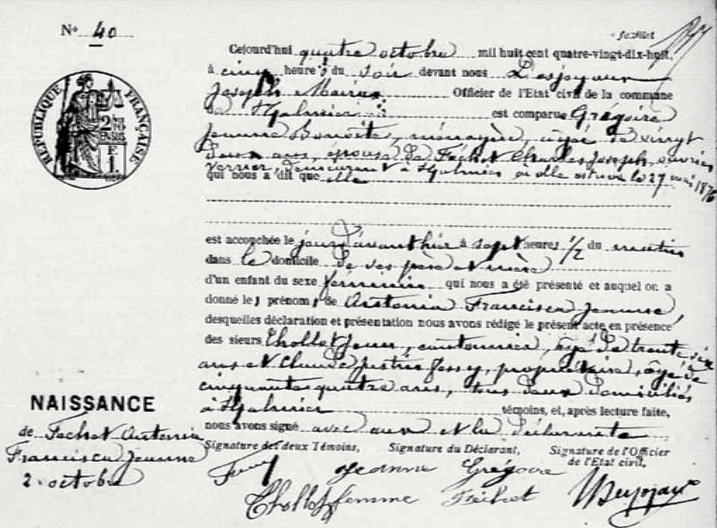 No 40
feuillet
Cejourd'hui quatre octobre mil huit cent quatre-vingt-dix-huit,
à cinq heures du soir devant nous Desjoyaux
Joseph Marius Officier de l'Etat civil de la commune
de St Galmier est comparue Grégoire
Jeanne Benoite, ménagère, âgée de vingt
deux ans, épouse de Fachot Charles Joseph, ouvrier
verrier, demeurant à St Galmier où elle est née le 27 mai 1876
qui nous a dit que elle
est accouchée le jour d'avant hier à sept heures 1/2 du matin
dans le domicile de ses père et mère
d'un enfant du sexe féminin qui nous a été présenté et auquel on a
donné les prénoms de Antonia Francisca Jeanne,
desquelles déclaration et présentation nous avons rédigé le présent acte en présence
des sieurs Chollet Jean, cantonnier, âgé de trente six
ans et Claude Jessy, propriétaire, âgé de
cinquante quatre ans, tous deux domiciliés
à St Galmier témoins, et, après lecture faite,
nous avons signé avec eux et la déclarante
Signature des deux Témoins, Signature du Déclarant, Signature de l'Officier
de l'Etat civil,
Jeanne Grégoire
Chollet femme Fachot Desjoyaux
RÉPUBLIQUE FRANÇAISE
NAISSANCE
de Fachot Antonia
Francisca Jeanne
2 octobre